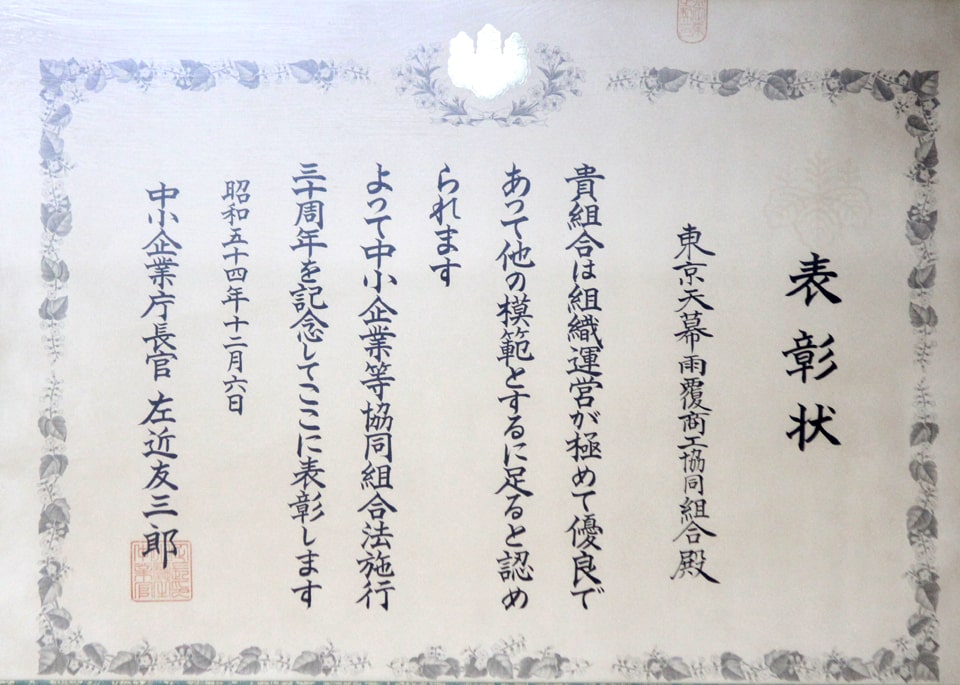 表彰状
東京天幕雨覆商工協同組合殿
貴組合は組織運営が極めて優良で
あって他の模範とするに足ると認め
られます
よって中小企業等協同組合法施行
三十周年を記念してここに表彰します
昭和五十四年十二月六日
中小企業庁長官 左近友三郎